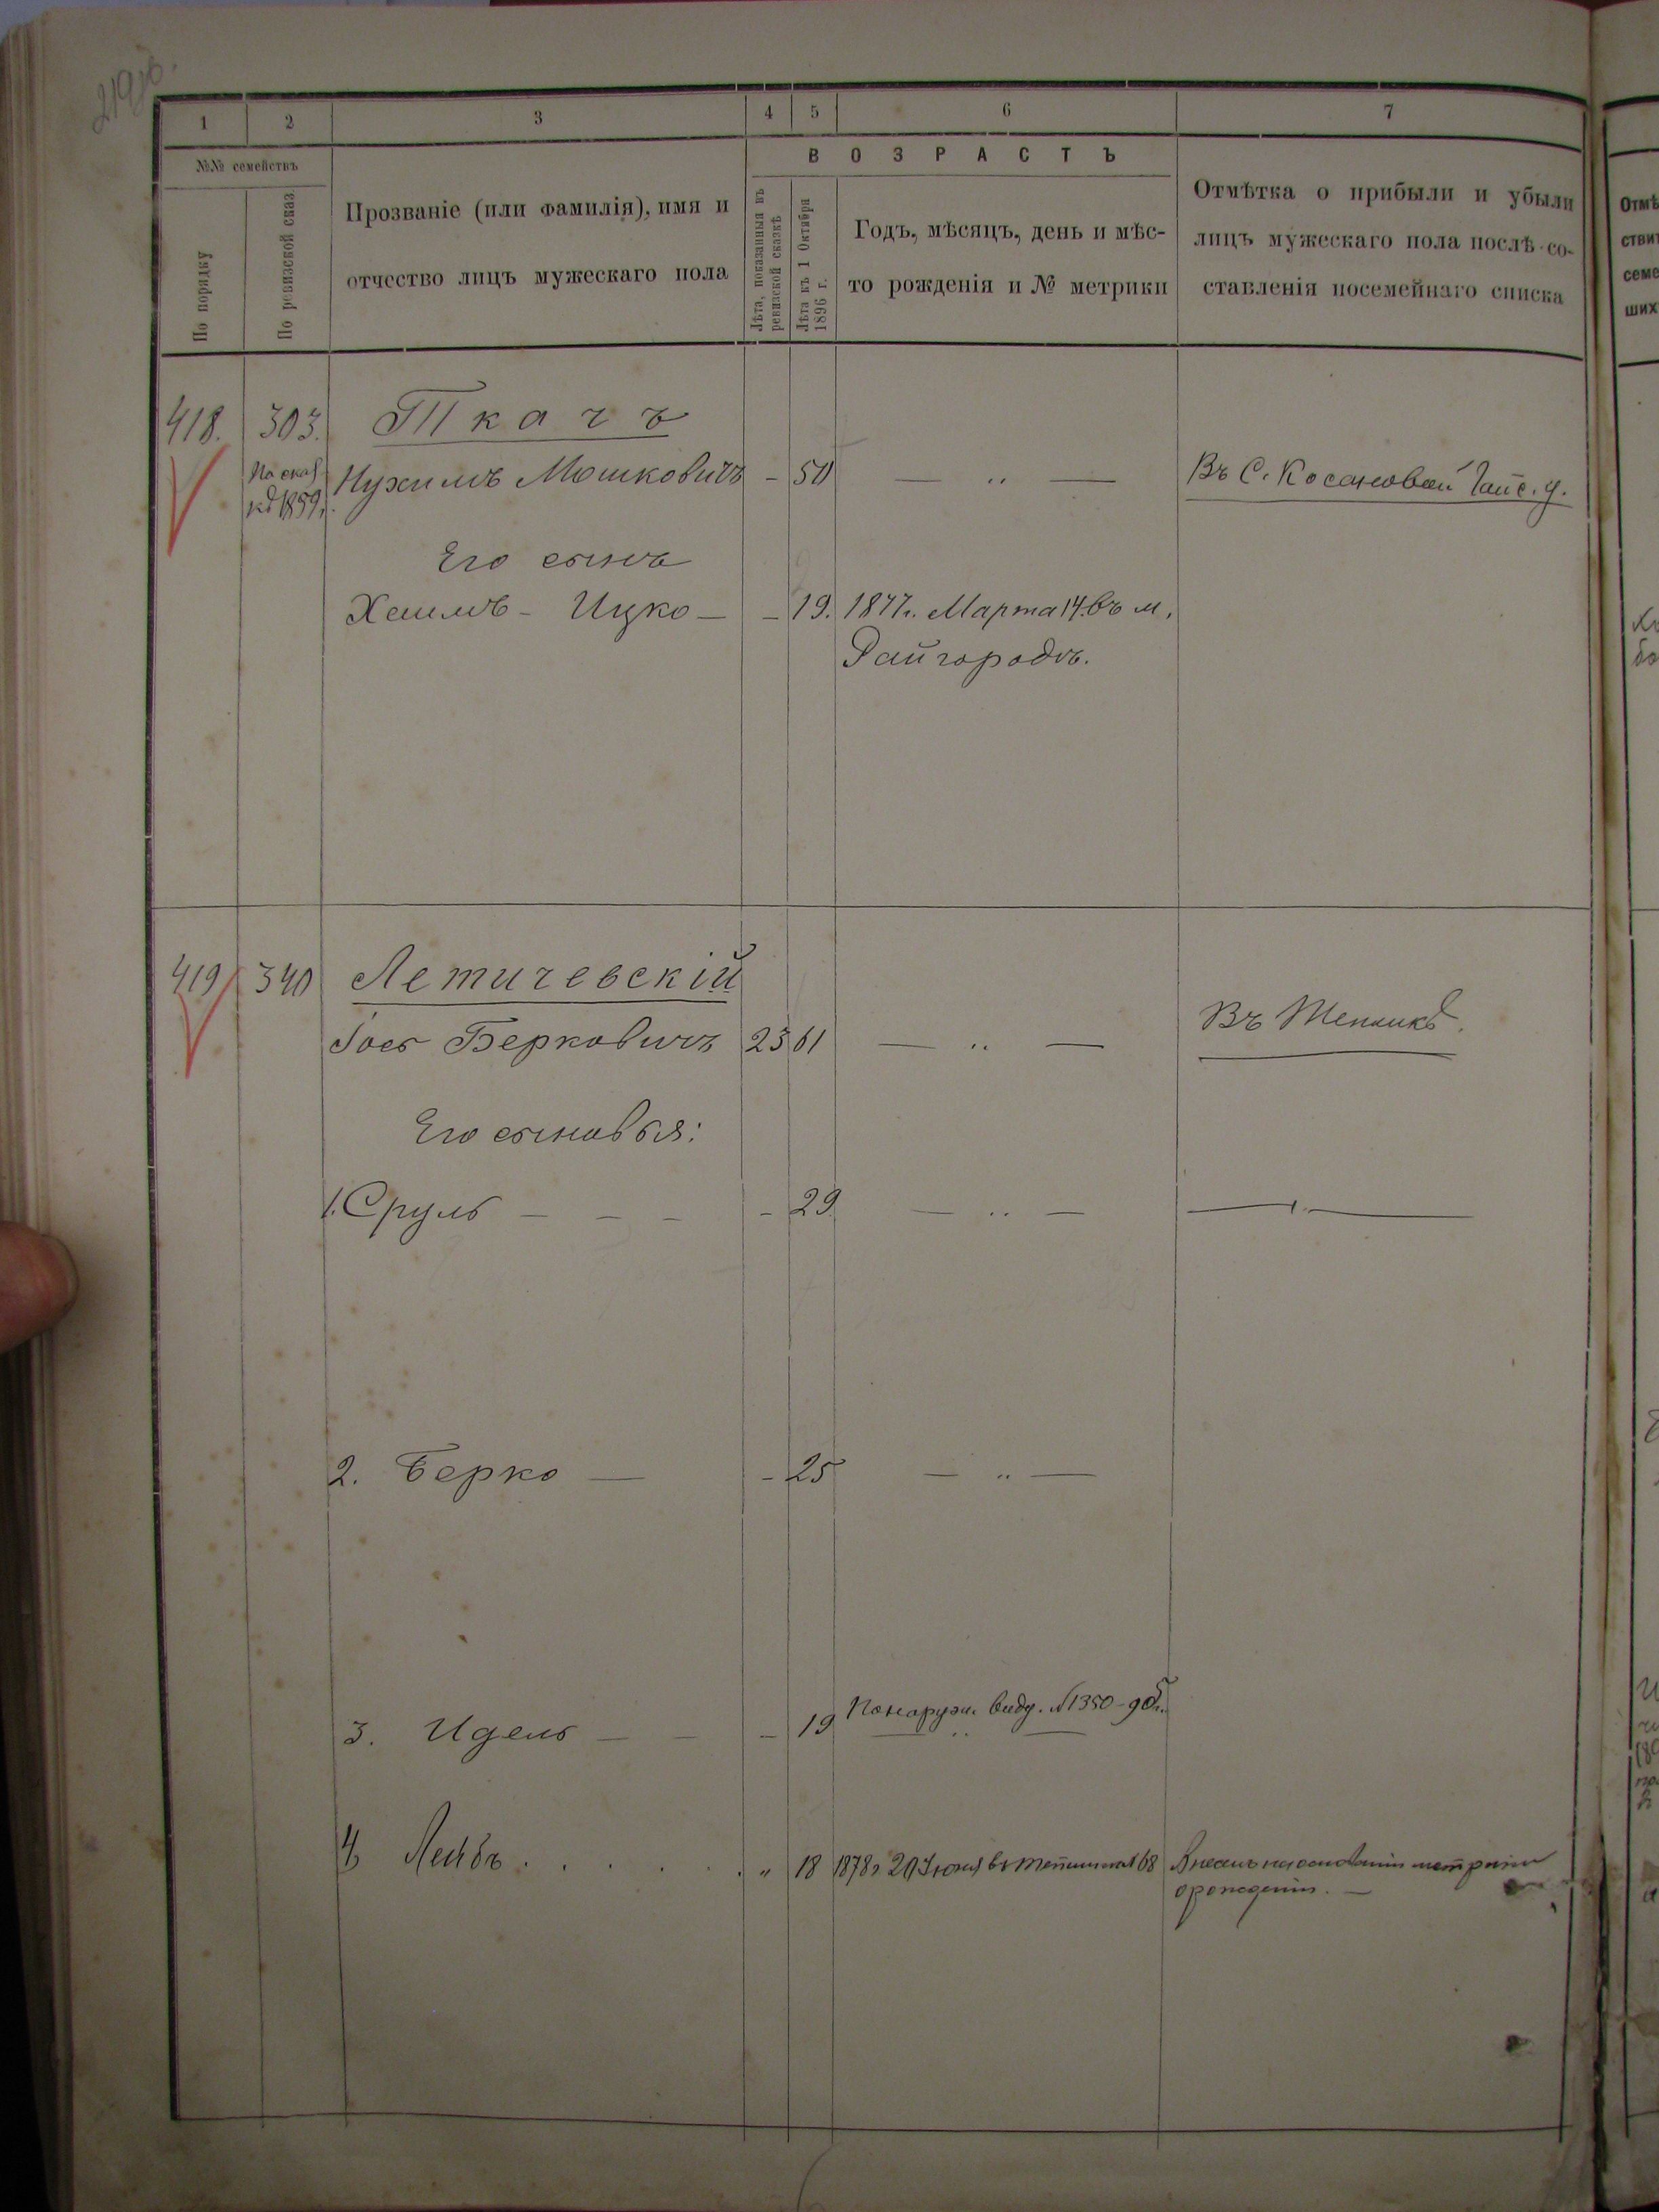 219об.
1 2 3 4 5 6 7
№№ семействъ
По порядку
По ревизской сказ
Прозваніе (или фамилія), имя и
отчество лицъ мужескаго пола
ВОЗРАСТЪ
Лѣта, показанныя въ
ревизской сказкѣ
Лѣта къ 1 Октября
1896 г.
Годъ, мѣсяцъ, день и мѣс-
то рожденія и № метрики
Отмѣтка о прибыли и убыли
лицъ мужескаго пола послѣ со-
ставленія посемейнаго списка
418. 303. Ткачъ
По сказ
1859 г.
Нухимъ Мошковичъ - 50 — „ — Въ С. Косановой Гайс. у.
Его сынъ
Хаимъ - Ицко — - 19. 1877 г. Марта 14. въ м.
Райгородѣ.
419 340 Летичевскій
Іось Берковичъ 23 61 — „ — Въ Тепликѣ.
Его сыновья:
1. Сруль — — — - 29 — „ — — „ —
2. Берко — - 25 — „ —
3. Идель — — - 19 По наружн. виду. №1350-90 г.
— „ —
4 Лейбъ . . . . . „ 18 1878 г 20 Іюня въ 68 Внесенъ на основаніи метрики
о рожденіи. —